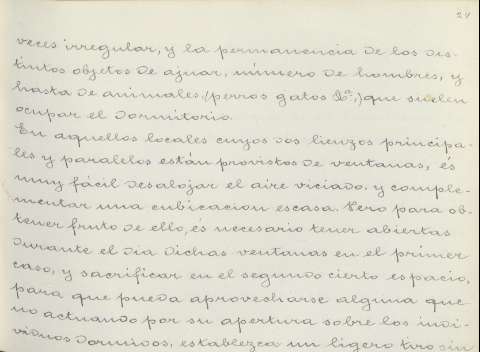 24
veces irregular, y la permanencia de los dis-
tintos objetos de ajuar, número de hombres, y
hasta de animales, (perros gatos &ª,) que suelen
ocupar el dormitorio.
En aquellos locales cuyos dos lienzos principa-
les y paralelos están provistos de ventanas, és
muy fácil desalojar el aire viciado, y comple-
mentar una cubicacion escasa. Pero para ob-
tener fruto de ello, és necesario tener abiertas
durante el dia dichas ventanas en el primer
caso, y sacrificar en el segundo cierto espacio,
para que pueda aprovecharse alguna que
no actuando por su apertura sobre los indi-
viduos dormidos, establezca un ligero tiro sin